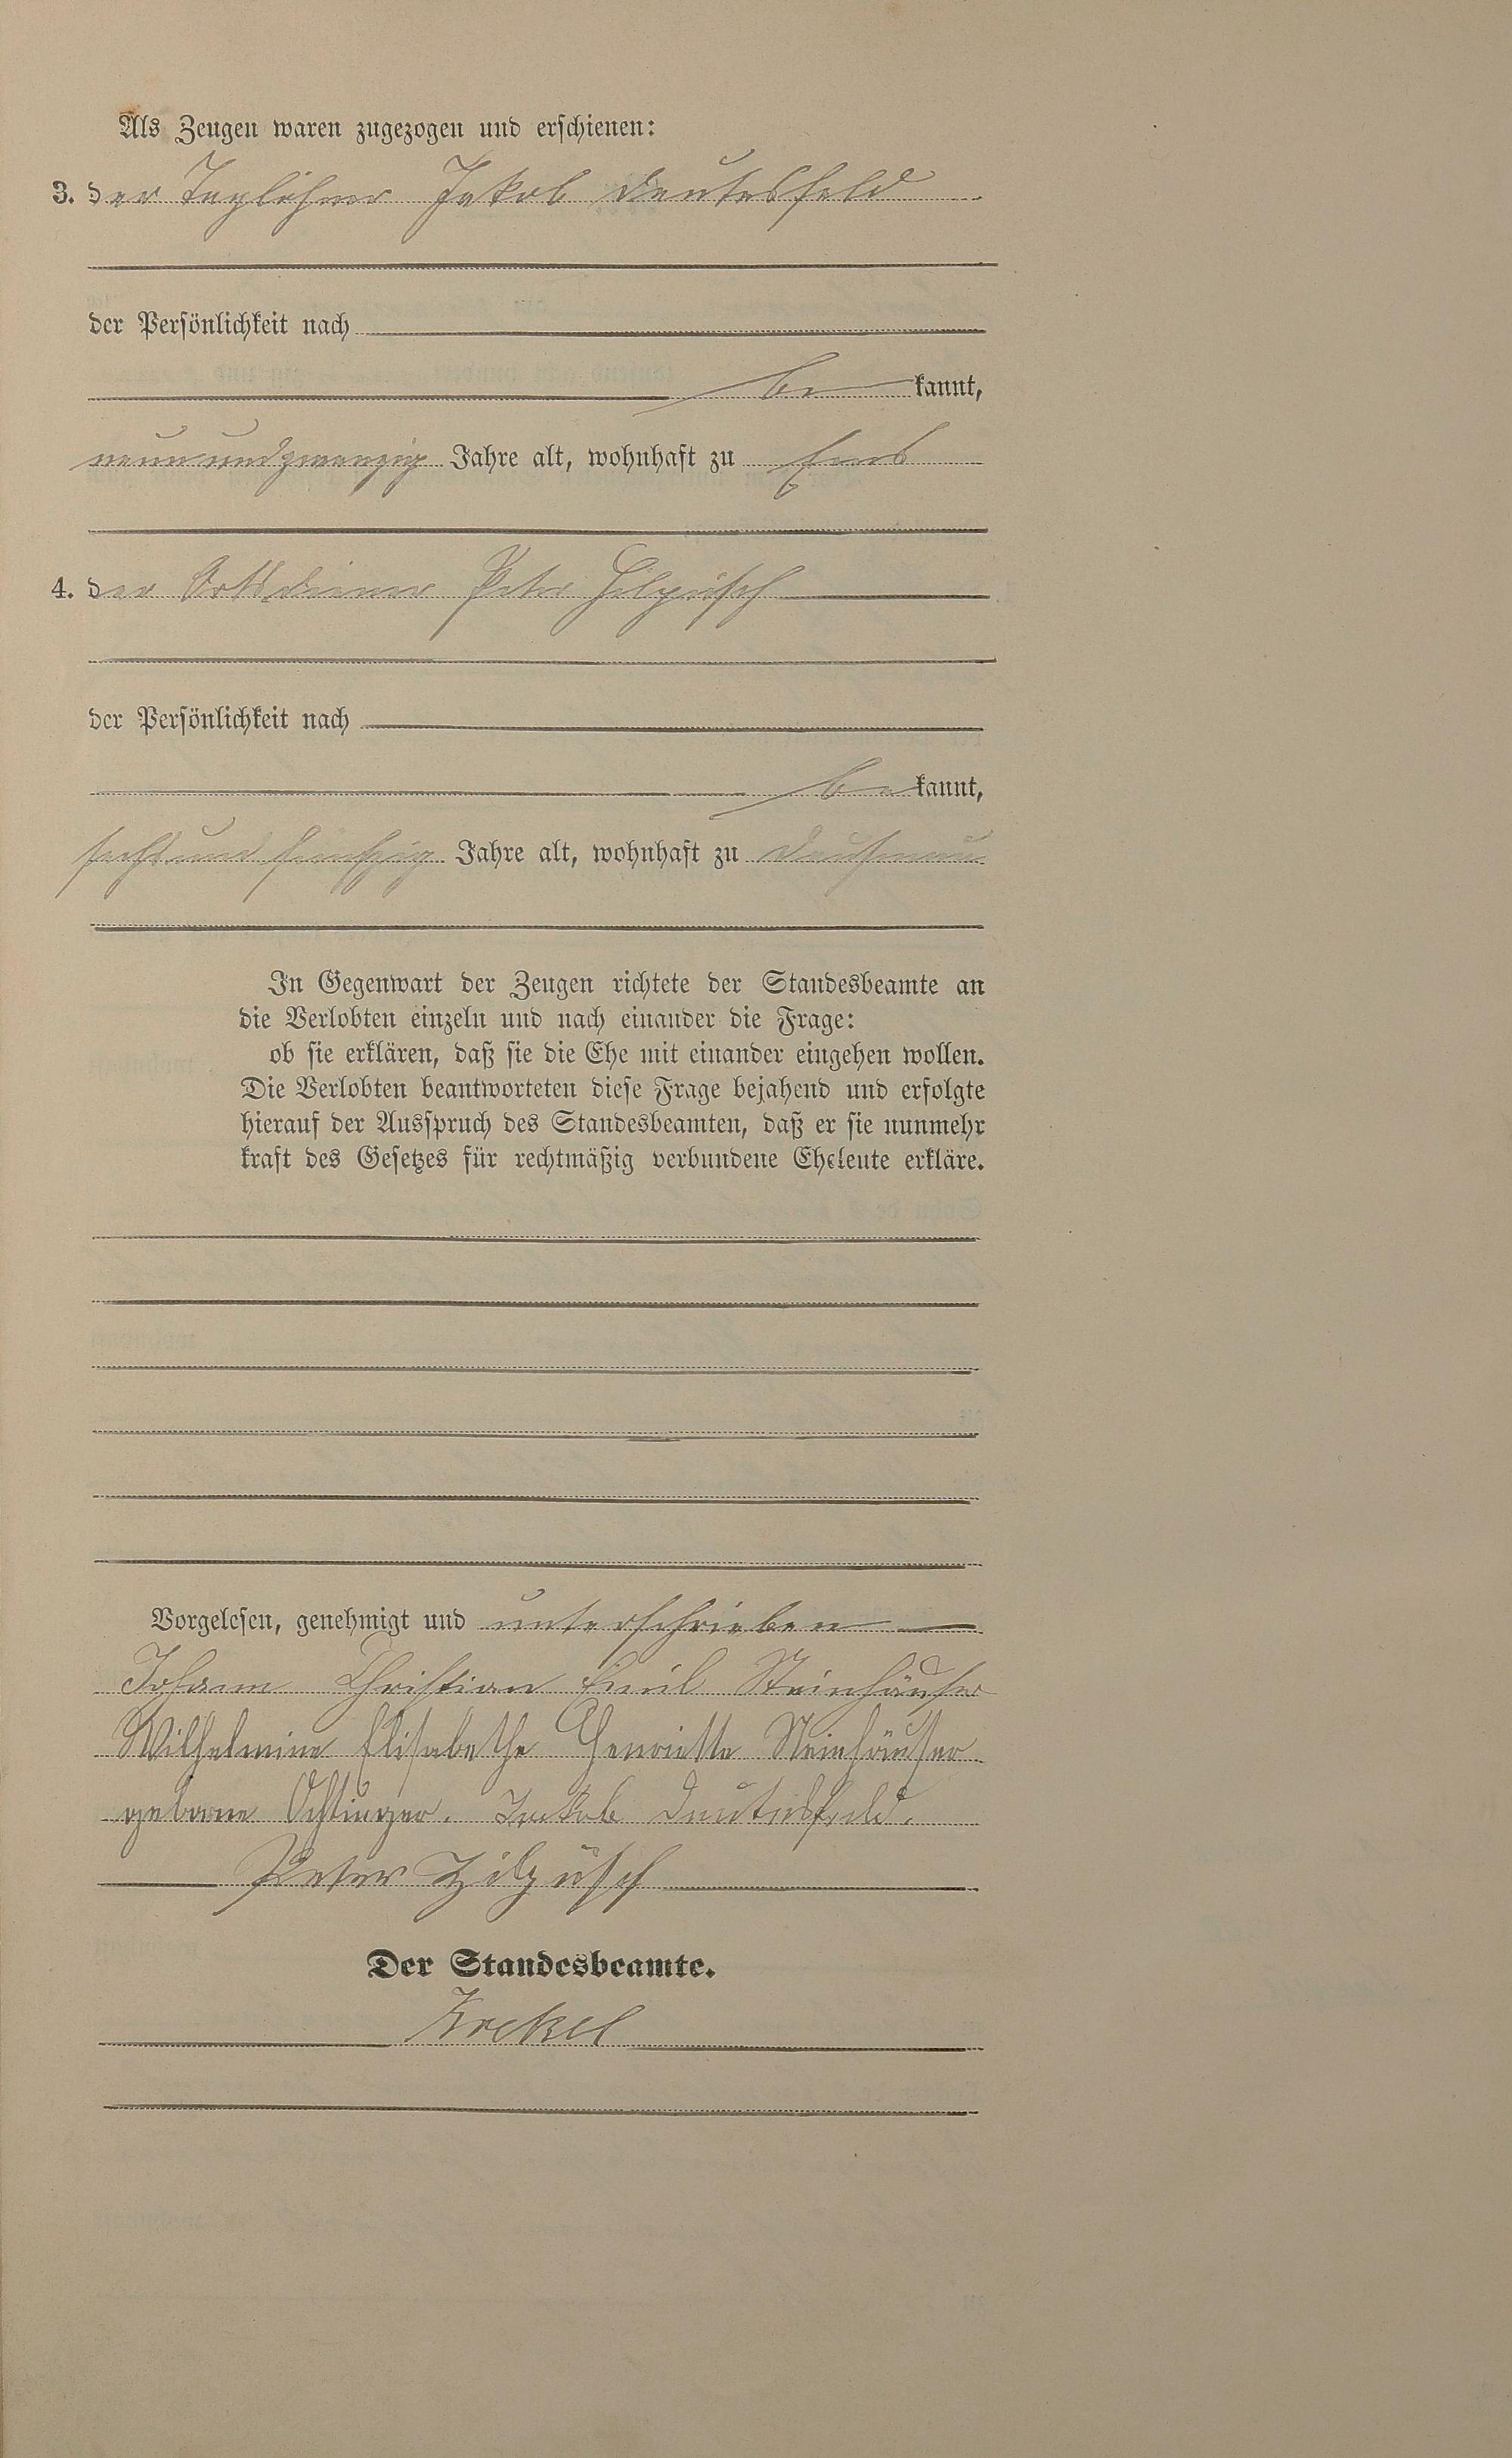 Als Zeugen waren zugezogen und erschienen:
3. der Taglöhner Jakob Deutesfeld
der Persönlichkeit nach
bekannt,
neunundzwanzig Jahre alt, wohnhaft zu Ems
4. der Ortsdiener Peter Hilgüsch
der Persönlichkeit nach
bekannt,
sechsundfünfzig Jahre alt, wohnhaft zu Dausenau
In Gegenwart der Zeugen richtete der Standesbeamte an
die Verlobten einzeln und nach einander die Frage:
ob sie erklären, daß sie die Ehe mit einander eingehen wollen.
Die Verlobten beantworteten diese Frage bejahend und erfolgte
hierauf der Ausspruch des Standesbeamten, daß er sie nunmehr
kraft des Gesetzes für rechtmäßig verbundene Eheleute erkläre.
Vorgelesen, genehmigt und unterschrieben
Johann Christian Emil Steinhäuser
Wilhelmine Elisabethe Henriette Steinhäuser
geborne Jakob Deutesfeld.
Peter Hilgüsch
Der Standesbeamte.
Krekel